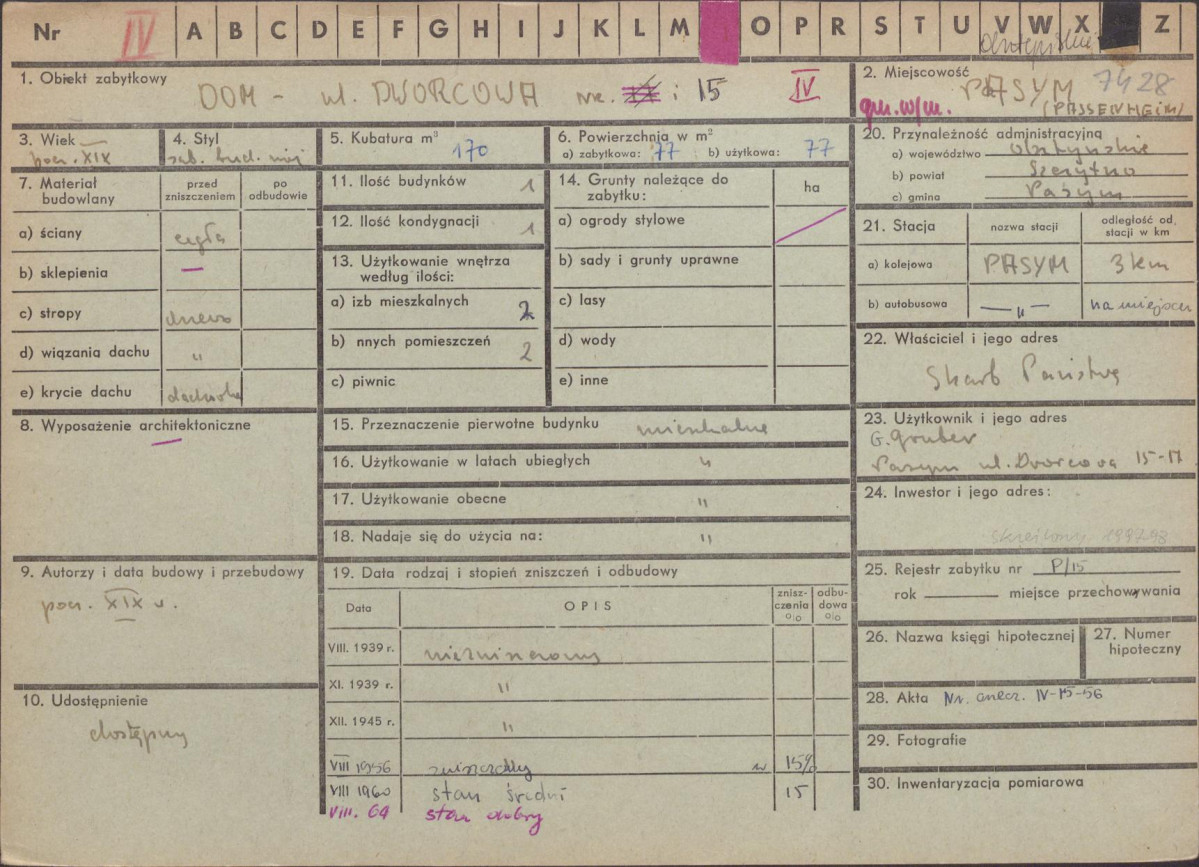 Nr IV A B C D E F G H I J K L M O P R S T U V W X Z
1. Obiekt zabytkowy
DOM - ul. DWORCOWA nr. i 15 IV
2. Miejscowość
PASYM 7428
gm. w/m. (PASSENHEIM)
3. Wiek
pocz. XIX
4. Styl
5. Kubatura m³
170
6. Powierzchnia w m²
a) zabytkowa: 77 b) użytkowa: 77
20. Przynależność administracyjna
a) województwo olsztyńskie
b) powiat Szczytno
c) gmina Pasym
7. Materiał budowlany
przed zniszczeniem
po odbudowie
a) ściany cegła
b) sklepienia —
c) stropy drewno
d) wiązania dachu "
e) krycie dachu dachówka
11. Ilość budynków 1
12. Ilość kondygnacji 1
13. Użytkowanie wnętrza według ilości:
a) izb mieszkalnych 2
b) nnych pomieszczeń 2
c) piwnic
14. Grunty należące do zabytku:
ha
a) ogrody stylowe
b) sady i grunty uprawne
c) lasy
d) wody
e) inne
21. Stacja
nazwa stacji
odległość od stacji w km
a) kolejowa PASYM 3 km
b) autobusowa —"— na miejscu
22. Właściciel i jego adres
Skarb Państwa
8. Wyposażenie architektoniczne
—
15. Przeznaczenie pierwotne budynku mieszkalne
16. Użytkowanie w latach ubiegłych "
17. Użytkowanie obecne "
18. Nadaje się do użycia na: "
23. Użytkownik i jego adres
G. Gruber
Pasym ul. Dworcowa 15-17
24. Inwestor i jego adres:
9. Autorzy i data budowy i przebudowy
pocz. XIX w.
19. Data rodzaj i stopień zniszczeń i odbudowy
Data
OPIS
znisz-czenia %
odbu-dowa %
VIII. 1939 r. niezniszczony
XI. 1939 r. "
XII. 1945 r. "
VIII 1956 zniszczony w 15%
VIII 1960 stan średni 15
VIII. 64 stan dobry
25. Rejestr zabytku nr P/15
rok miejsce przechowywania
26. Nazwa księgi hipotecznej
27. Numer hipoteczny
10. Udostępnienie
dostępny
28. Akta Nr. IV-15-56
29. Fotografie
30. Inwentaryzacja pomiarowa